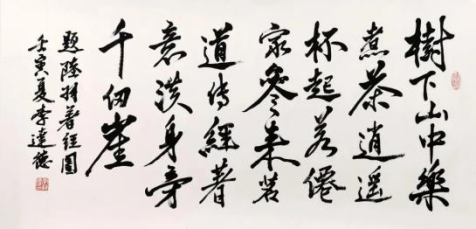 樹下山中樂
煮茶逍遥
杯起若僊
家參来茗
道傳經著
意淡身旁
千仞崖
題陸羽著經圖
壬寅夏李達德